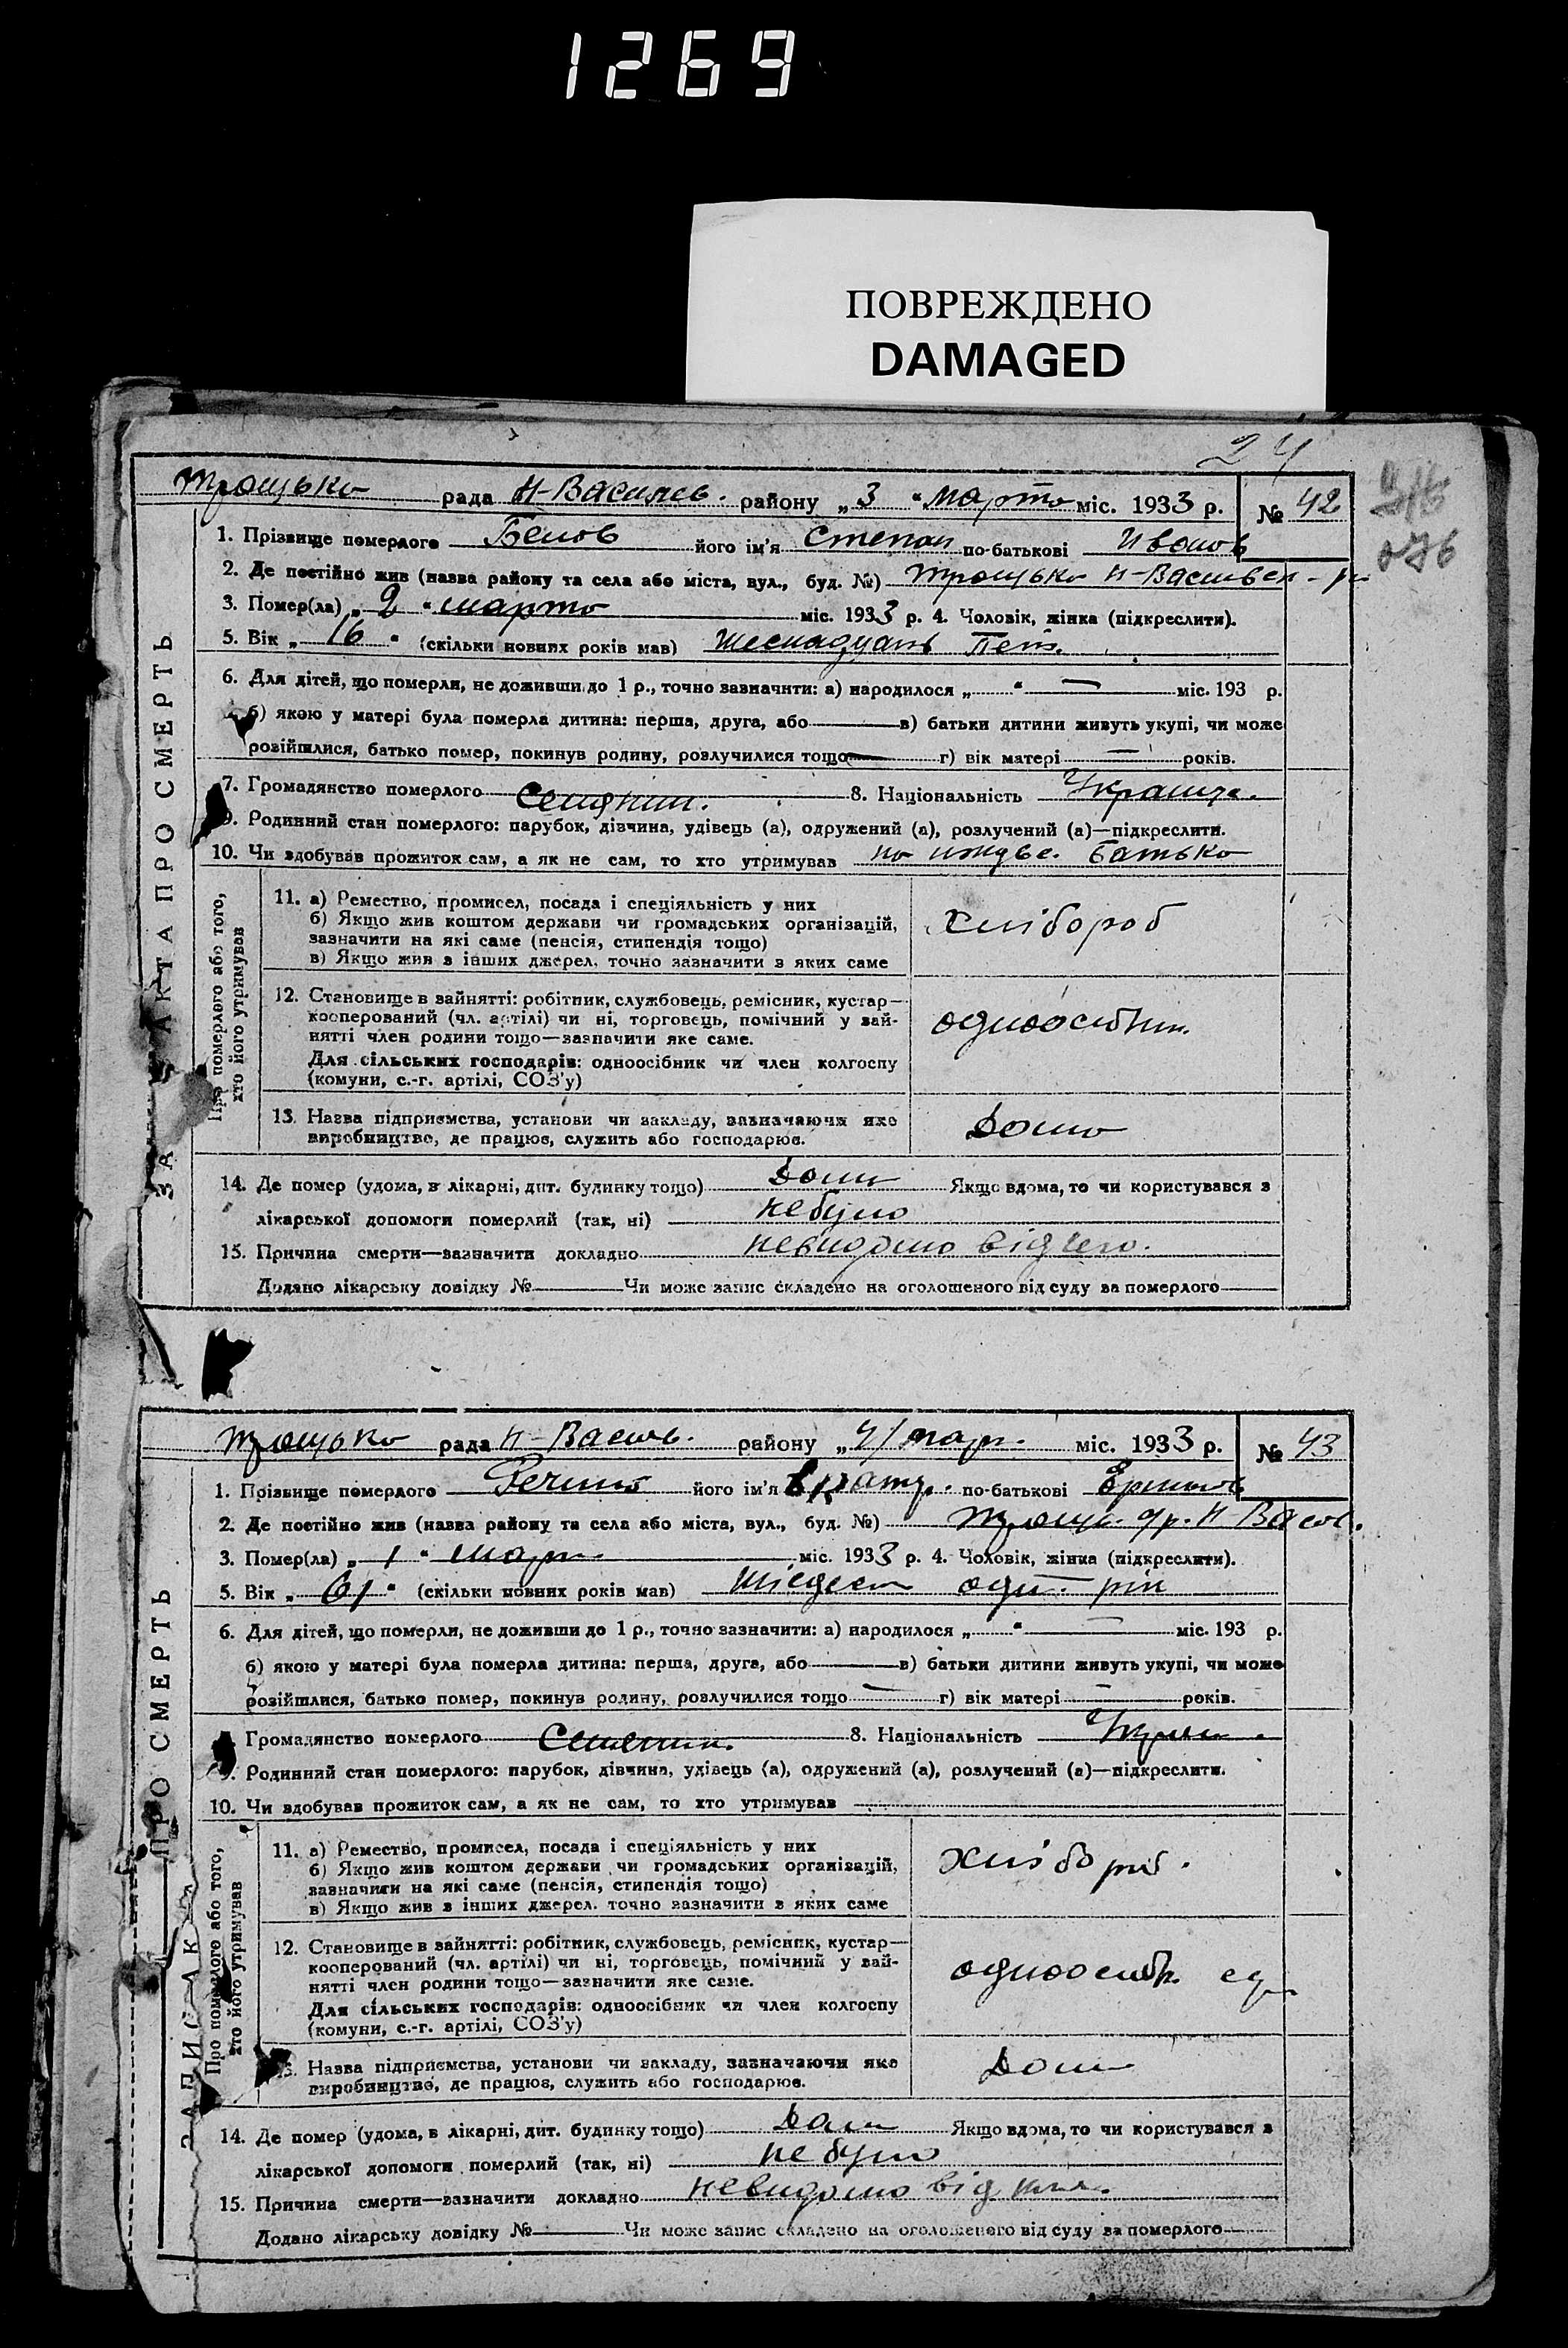 1269
ПОВРЕЖДЕНО
DAMAGED
24
Троцько рада Н-Василев. району „3 “ марто міс. 1933 р. № 42
1. Прізвище померлого Белов його ім'я Степан по-батькові Иванов
2. Де постійно жив (назва району та села або міста, вул., буд. №) Троцько Н-Васильев
3. Помер(ла) „ 2 “ марто міс. 1933 р. 4. Чоловік, жінка (підкреслити).
5. Вік „ 16 “ (скільки повних років мав)
6. Для дітей, що померли, не доживши до 1 р., точно зазначити: а) народилося „ “ — міс. 193 р.
б) якою у матері була померла дитина: перша, друга, або — в) батьки дитини живуть укупі, чи може
розійшлися, батько помер, покинув родину, розлучилися тощо — г) вік матері — років.
7. Громадянство померлого Селянин. 8. Національність Украинц.
9. Родинний стан померлого: парубок, дівчина, удівець (а), одружений (а), розлучений (а)—підкреслити.
10. Чи здобував прожиток сам, а як не сам, то хто утримував на иждве. Батько
ЗАПИС АКТА ПРО СМЕРТЬ
Про померлого або того, хто його утримував
11. а) Ремество, промисел, посада і спеціяльність у них
б) Якщо жив коштом держави чи громадських організацій,
зазначити на які саме (пенсія, стипендія тощо)
в) Якщо жив з інших джерел, точно зазначити з яких саме
хлібороб
12. Становище в зайнятті: робітник, службовець, ремісник, кустар—
кооперований (чл. артілі) чи ні, торговець, помічний у зай-
нятті член родини тощо—зазначити яке саме.
Для сільських господарів: одноосібник чи член колгоспу
(комуни, с.-г. артілі, СОЗ'у)
одноосібник.
13. Назва підприємства, установи чи закладу, зазначаючи яке
виробництво, де працює, служить або господарює.
Дома
14. Де помер (удома, в лікарні, дит. будинку тощо) Дома Якщо вдома, то чи користувався з
лікарської допомоги померлий (так, ні) не було
15. Причина смерти—зазначити докладно невидомо від чего.
Додано лікарську довідку № — Чи може запис складено на оголошеного від суду за померлого —
Троцько рада Н-Васил. району „4/ мар. міс. 1933 р. № 43
1. Прізвище померлого його ім'я по-батькові
2. Де постійно жив (назва району та села або міста, вул., буд. №) Троцьк. др. Н Васил.
3. Помер(ла) „ 1 “ мар. міс. 1933 р. 4. Чоловік, жінка (підкреслити).
5. Вік „ 61 “ (скільки повних років мав) шісдесят один рік
6. Для дітей, що померли, не доживши до 1 р., точно зазначити: а) народилося „ “ — міс. 193 р.
б) якою у матері була померла дитина: перша, друга, або — в) батьки дитини живуть укупі, чи може
розійшлися, батько помер, покинув родину, розлучилися тощо — г) вік матері — років.
Громадянство померлого Селянин. 8. Національність Украин.
9. Родинний стан померлого: парубок, дівчина, удівець (а), одружений (а), розлучений (а)—підкреслити.
10. Чи здобував прожиток сам, а як не сам, то хто утримував
ЗАПИС АК ПРО СМЕРТЬ
Про померлого або того, хто його утримував
11. а) Ремество, промисел, посада і спеціяльність у них
б) Якщо жив коштом держави чи громадських організацій,
зазначити на які саме (пенсія, стипендія тощо)
в) Якщо жив з інших джерел, точно зазначити з яких саме
хлібороб.
12. Становище в зайнятті: робітник, службовець, ремісник, кустар—
кооперований (чл. артілі) чи ні, торговець, помічний у зай-
нятті член родини тощо—зазначити яке саме.
Для сільських господарів: одноосібник чи член колгоспу
(комуни, с.-г. артілі, СОЗ'у)
одноосібн.
13. Назва підприємства, установи чи закладу, зазначаючи яке
виробництво, де працює, служить або господарює.
Дома
14. Де помер (удома, в лікарні, дит. будинку тощо) Дома Якщо вдома, то чи користувався з
лікарської допомоги померлий (так, ні) не було
15. Причина смерти—зазначити докладно невидомо від
Додано лікарську довідку № — Чи може запис складено на оголошеного від суду за померлого —